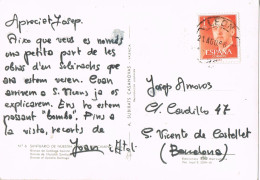 Apreciat Josep.
Aixo que veus es només
una petita part de les
obres d'en Subirachs que
ara estem veient. Cuan
arrivem a S. Vicens ja os
explicarem. Ens ho estem
passant "bomba". Fins a
la vista, recorts de
Joan i
A. SUBIRATS CASANOVAS
ESPAÑA
CORREOS
Josep Amoros
C/. Cardillo 47
S. Vicente de Castellet
(Barcelona)